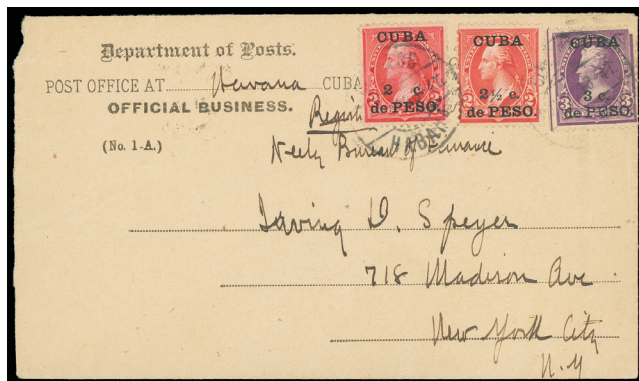 Department of Posts.
POST OFFICE AT Havana CUBA
OFFICIAL BUSINESS.
(No. 1-A.)
CUBA
2 c.
de PESO.
CUBA
2½ c.
de PESO.
CUBA
3 c.
de PESO.
HABANA
Neely Bureau of Finance
Irving D. Speyer
718 Madison Ave
New York City
N.Y